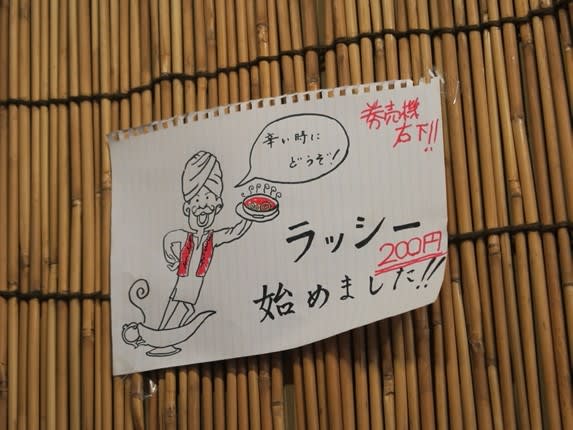 券売機
右下!!
辛い時に
どうぞ!
ラッシー
200円
始めました!!